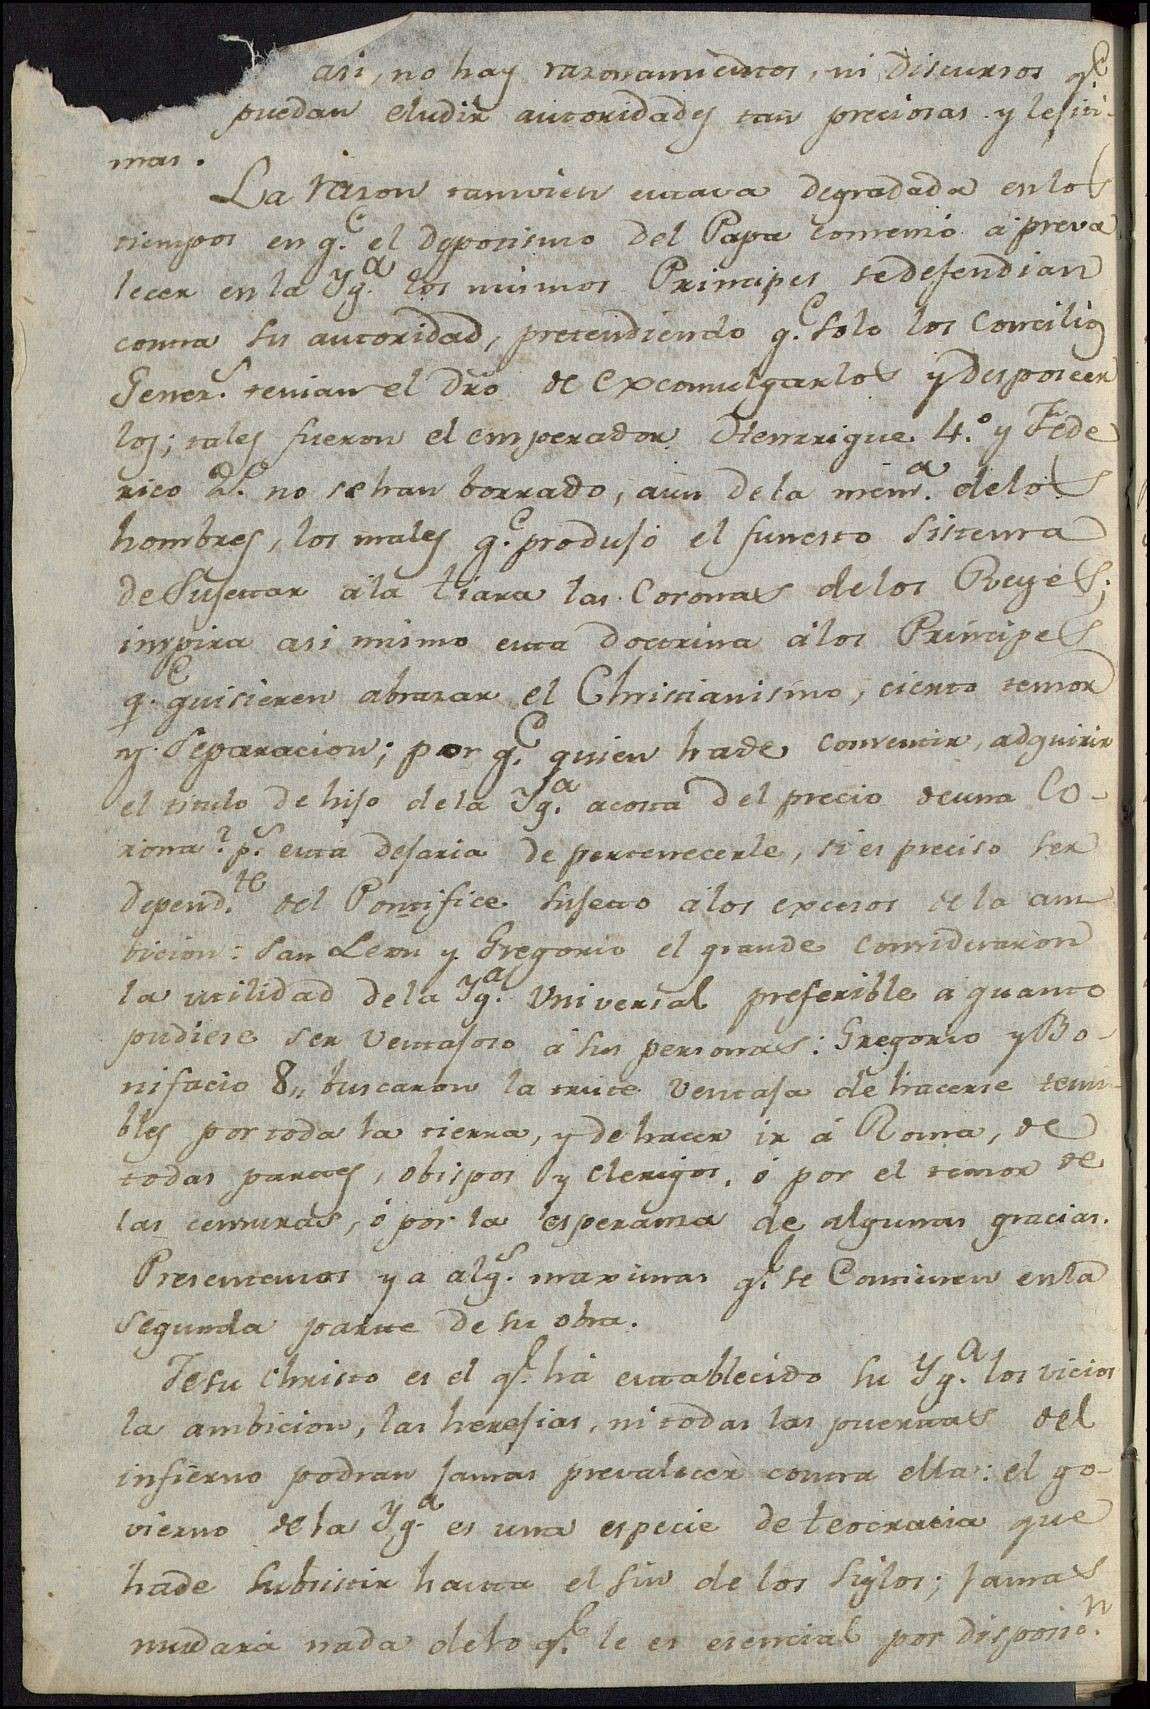 asi, no hay razonamientos, ni Discursos q.e
puedan eludir autoridades tan preciosas y lejiti-
mas.
La razon tanvien estava degradada en los
tiempos en q.e el dsposismo del Papa comenzó a preva
lecer en la Yg.a los mismos Principes se defendian
contra su autoridad, pretendiendo q.e solo los Concilios
Gener.s tenian el dro de excomulgarlos y desposeer
los; tales fueron el emperador Henrrique 4.o y Fede
rico 2.o no se han borrado, aun de la mem.a de los
hombres, los males q.e produjo el funesto sistema
de Sujettar á la tiara las Coronas de los Reyes;
inspira asi mismo esta doctrina á los Principes
q.e quisieren abrazar el Christianismo, cierto temor
y Separacion; por q.e quien hade consentir, adquirir
el titulo de hijo de la Yg.a acosta del precio de una Co-
rona? p.s esta dejaria de pertenecerle, si es preciso ser
depend.te del Pontifice sujeto á los excesos de la am
vicion: San Leon y Gregorio el grande consideraron
la utilidad de la Yg.a Universal preferible a quanto
pudiese ser Ventajoso á sus personas: Gregorio y Bo-
nifacio 8,, buscaron la triste Ventaja de hacerse temi-
bles por toda la tierra, y de hacer ir á Roma, de
todas partes, obispos y clerigos, ó por el temor de
las censuras, ó por la esperanza de algunas gracias.
Presentemos ya alg.s maximas q.e se Contienen en la
segunda parte de su obra.
Jesu Christo es el q.e ha establecido su Yg.a los vicios
la ambicion, las herejias, ni todas las puertas del
infierno podran jamas prevalecer contra ella: el go-
vierno de la Yg.a es una especie de teocracia que
hade subsistir hasta el fin de los siglos; jamas
mudará nada de lo q.e le es esencial por disposic.n